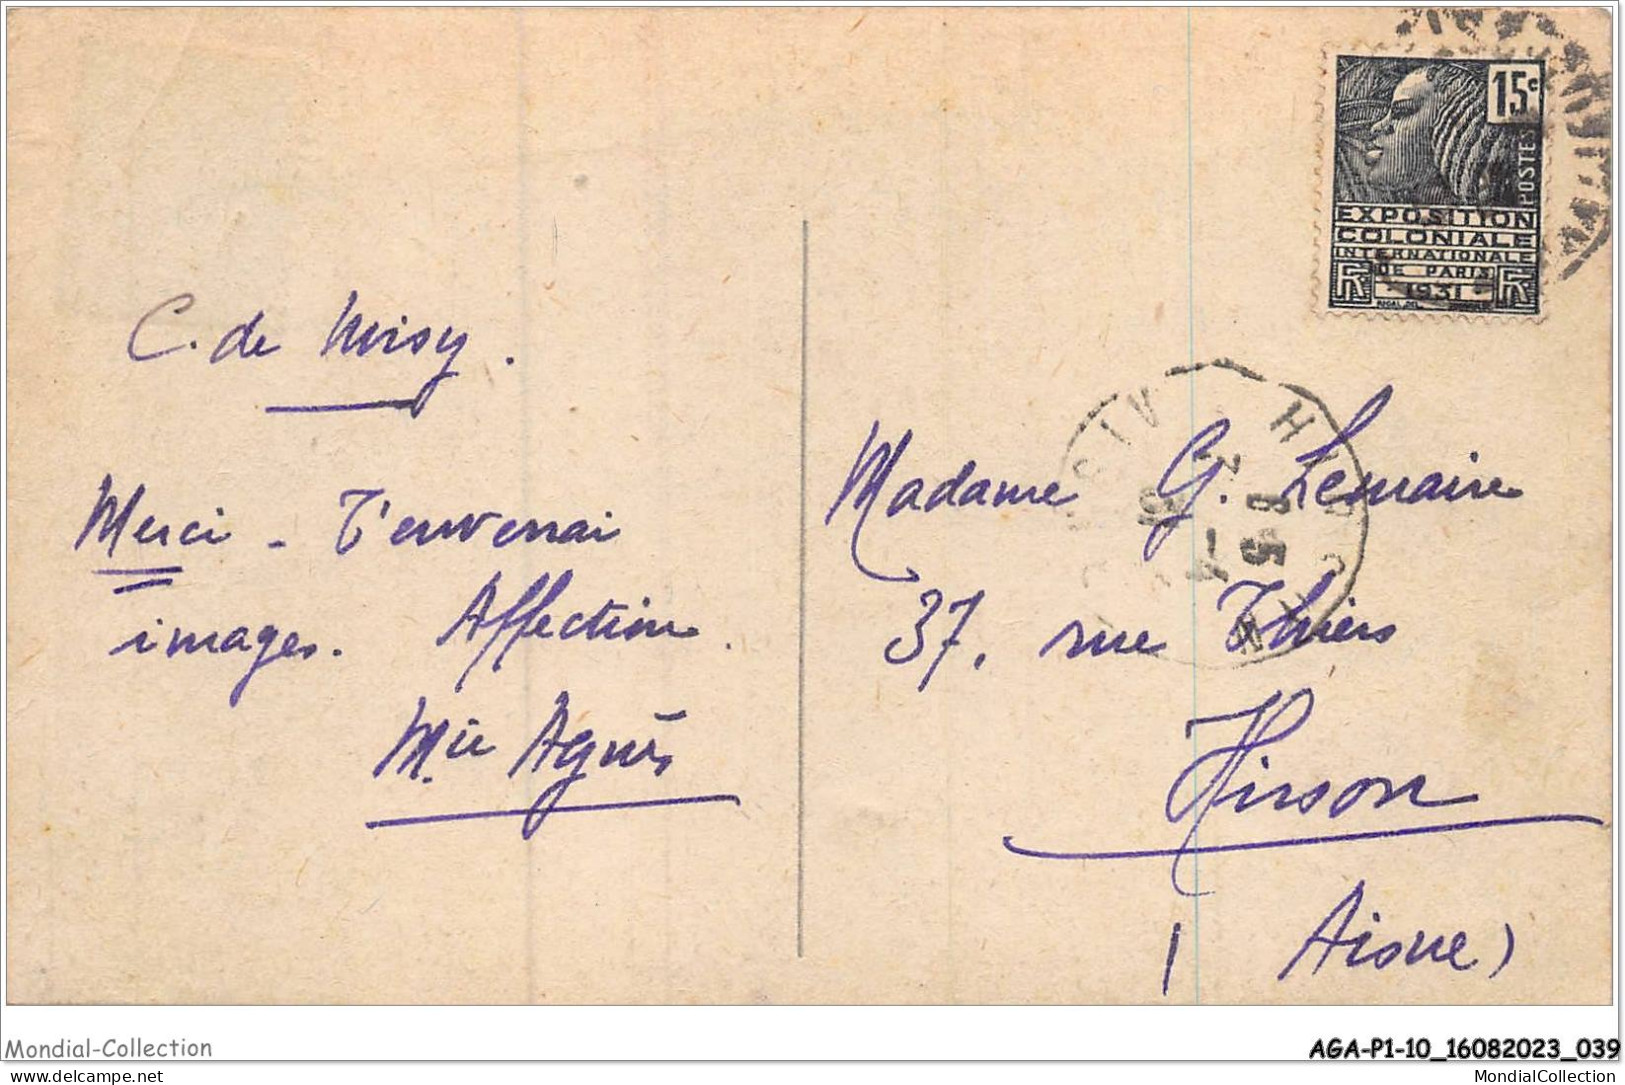 15c
POSTES
EXPOSITION
COLONIALE
INTERNATIONALE
DE PARIS
1931
RF RF
C. de Noisy.
Merci - T'enverrai
images. Affection.
Mie Agnès
HIRSON
Madame G. Lemaire
37, rue Thiers
Hirson
(Aisne)
Mondial-Collection
AGA-P1-10_16082023_039
delcampe.net
MondialCollection